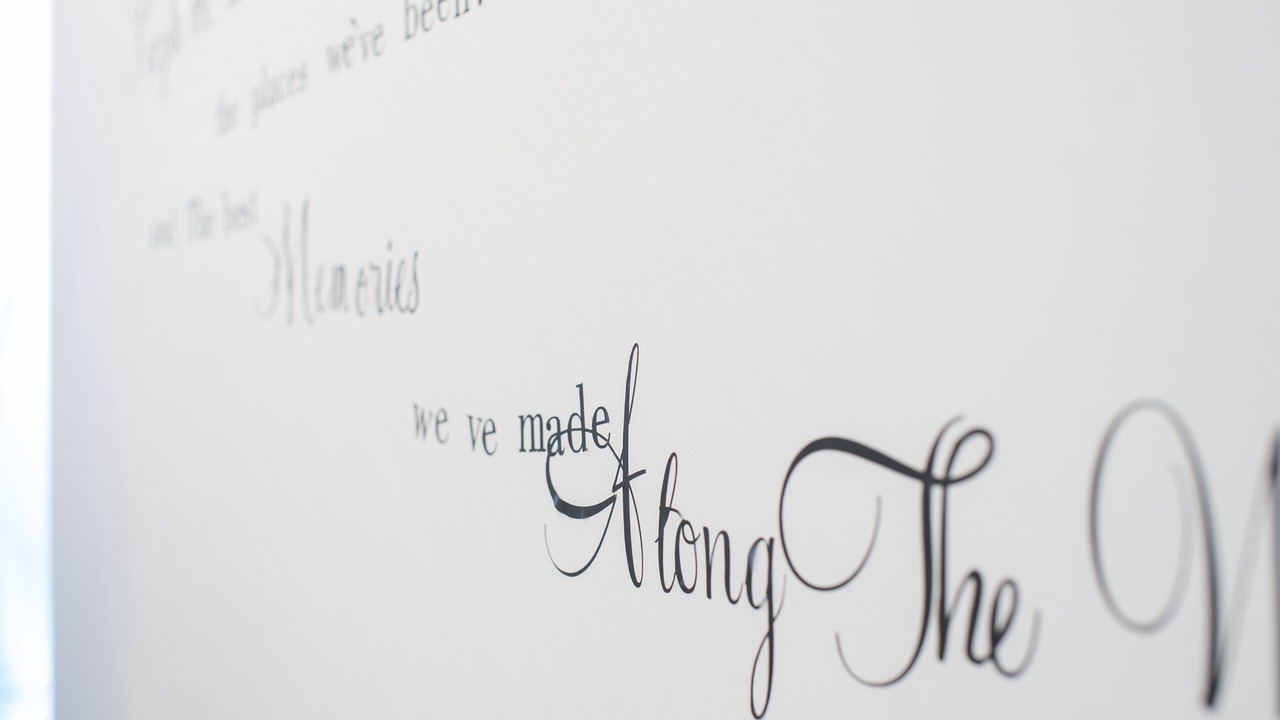 the places we've been.
and The best
Memories
we ve made
Along The